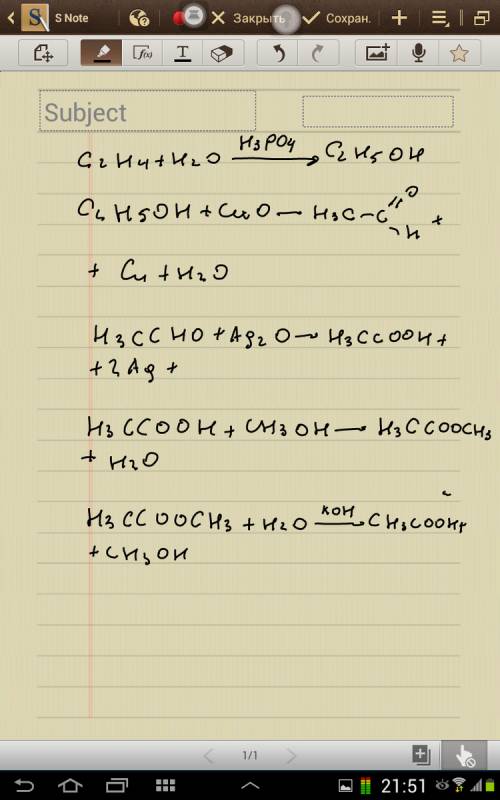 S Note
Закрыть
Сохран.
f(x)
T
Subject
C2H4+H2O H3PO4⟶ C2H5OH
C2H5OH + CuO — H3C–C=O –H +
+ Cu + H2O
H3CCHO + Ag2O → H3CCOOH +
+ 2Ag +
H3CCOOH + CH3OH → H3CCOOCH3
+ H2O
H3CCOOCH3 + H2O KOH⟶ CH3COOH+
+ CH3OH
1/1
21:51